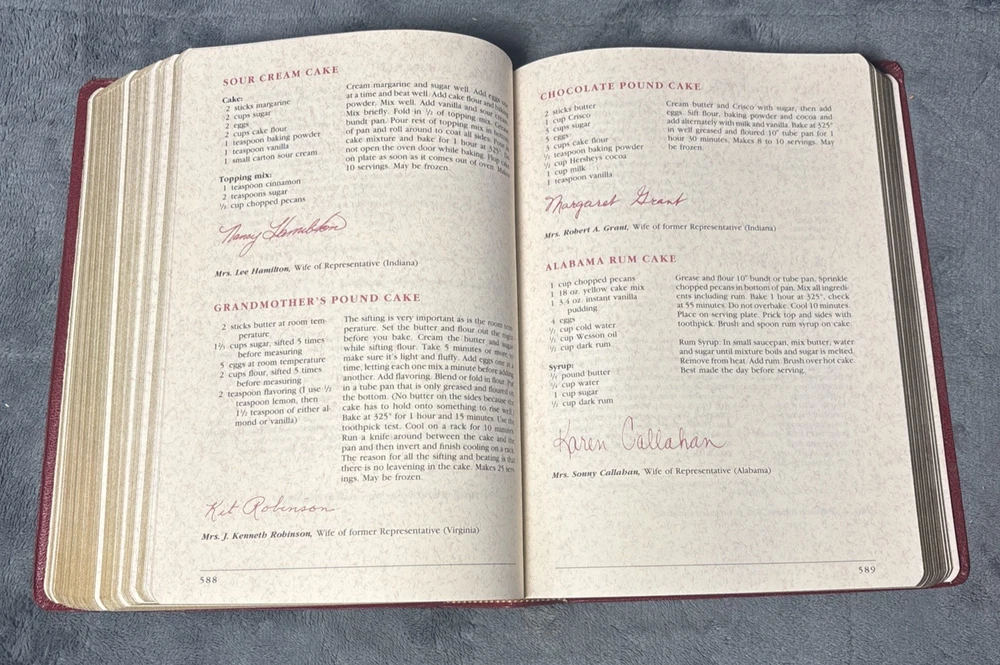 SOUR CREAM CAKE
Cake:
2 sticks margarine
2 cups sugar
2 eggs
2 cups cake flour
1 teaspoon baking powder
1 teaspoon vanilla
1 small carton sour cream
Topping mix:
1 teaspoon cinnamon
2 teaspoons sugar
½ cup chopped pecans
Cream margarine and sugar well. Add eggs
at a time and beat well. Add cake flour and
powder. Mix well. Add vanilla and sour
Mix briefly. Fold in ½ of topping mix.
bundt pan. Pour rest of topping mix in
of pan and roll around to coat all sides.
cake mixture and bake for 1 hour at 325°.
not open the oven door while baking.
on plate as soon as it comes out of oven.
10 servings. May be frozen.
Nancy Hamilton
Mrs. Lee Hamilton, Wife of Representative (Indiana)
GRANDMOTHER'S POUND CAKE
2 sticks butter at room tem-
perature
1⅔ cups sugar, sifted 5 times
before measuring
5 eggs at room temperature
2 cups flour, sifted 5 times
before measuring
2 teaspoon flavoring (I use ½
teaspoon lemon, then
1½ teaspoon of either al-
mond or vanilla)
The sifting is very important as is the room
perature. Set the butter and flour out the
before you bake. Cream the butter and sugar
while sifting flour. Take 5 minutes or more
make sure it's light and fluffy. Add eggs one
time, letting each one mix a minute before adding
another. Add flavoring. Blend or fold in flour.
in a tube pan that is only greased and floured
the bottom. (No butter on the sides because the
cake has to hold onto something to rise well.)
Bake at 325° for 1 hour and 15 minutes. Use the
toothpick test. Cool on a rack for 10 minutes
Run a knife around between the cake and the
pan and then invert and finish cooling on a rack.
The reason for all the sifting and beating is that
there is no leavening in the cake. Makes 25
ings. May be frozen.
Kit Robinson
Mrs. J. Kenneth Robinson, Wife of former Representative (Virginia)
588
CHOCOLATE POUND CAKE
2 sticks butter
1 cup Crisco
3 cups sugar
5 eggs
3 cups cake flour
½ teaspoon baking powder
½ cup Hersheys cocoa
1 cup milk
1 teaspoon vanilla
Cream butter and Crisco with sugar, then add
eggs. Sift flour, baking powder and cocoa and
add alternately with milk and vanilla. Bake at 325°
in well greased and floured 10" tube pan for 1
hour 30 minutes. Makes 8 to 10 servings. May
be frozen.
Margaret Grant
Mrs. Robert A. Grant, Wife of former Representative (Indiana)
ALABAMA RUM CAKE
1 cup chopped pecans
1 18 oz. yellow cake mix
1 3.4 oz. instant vanilla
pudding
4 eggs
½ cup cold water
½ cup Wesson oil
½ cup dark rum
Syrup:
¼ pound butter
¼ cup water
1 cup sugar
½ cup dark rum
Grease and flour 10" bundt or tube pan. Sprinkle
chopped pecans in bottom of pan. Mix all ingredi-
ents including rum. Bake 1 hour at 325°, check
at 55 minutes. Do not overbake. Cool 10 minutes.
Place on serving plate. Prick top and sides with
toothpick. Brush and spoon rum syrup on cake.
Rum Syrup: In small saucepan, mix butter, water
and sugar until mixture boils and sugar is melted.
Remove from heat. Add rum. Brush over hot cake.
Best made the day before serving.
Karen Callahan
Mrs. Sonny Callahan, Wife of Representative (Alabama)
589